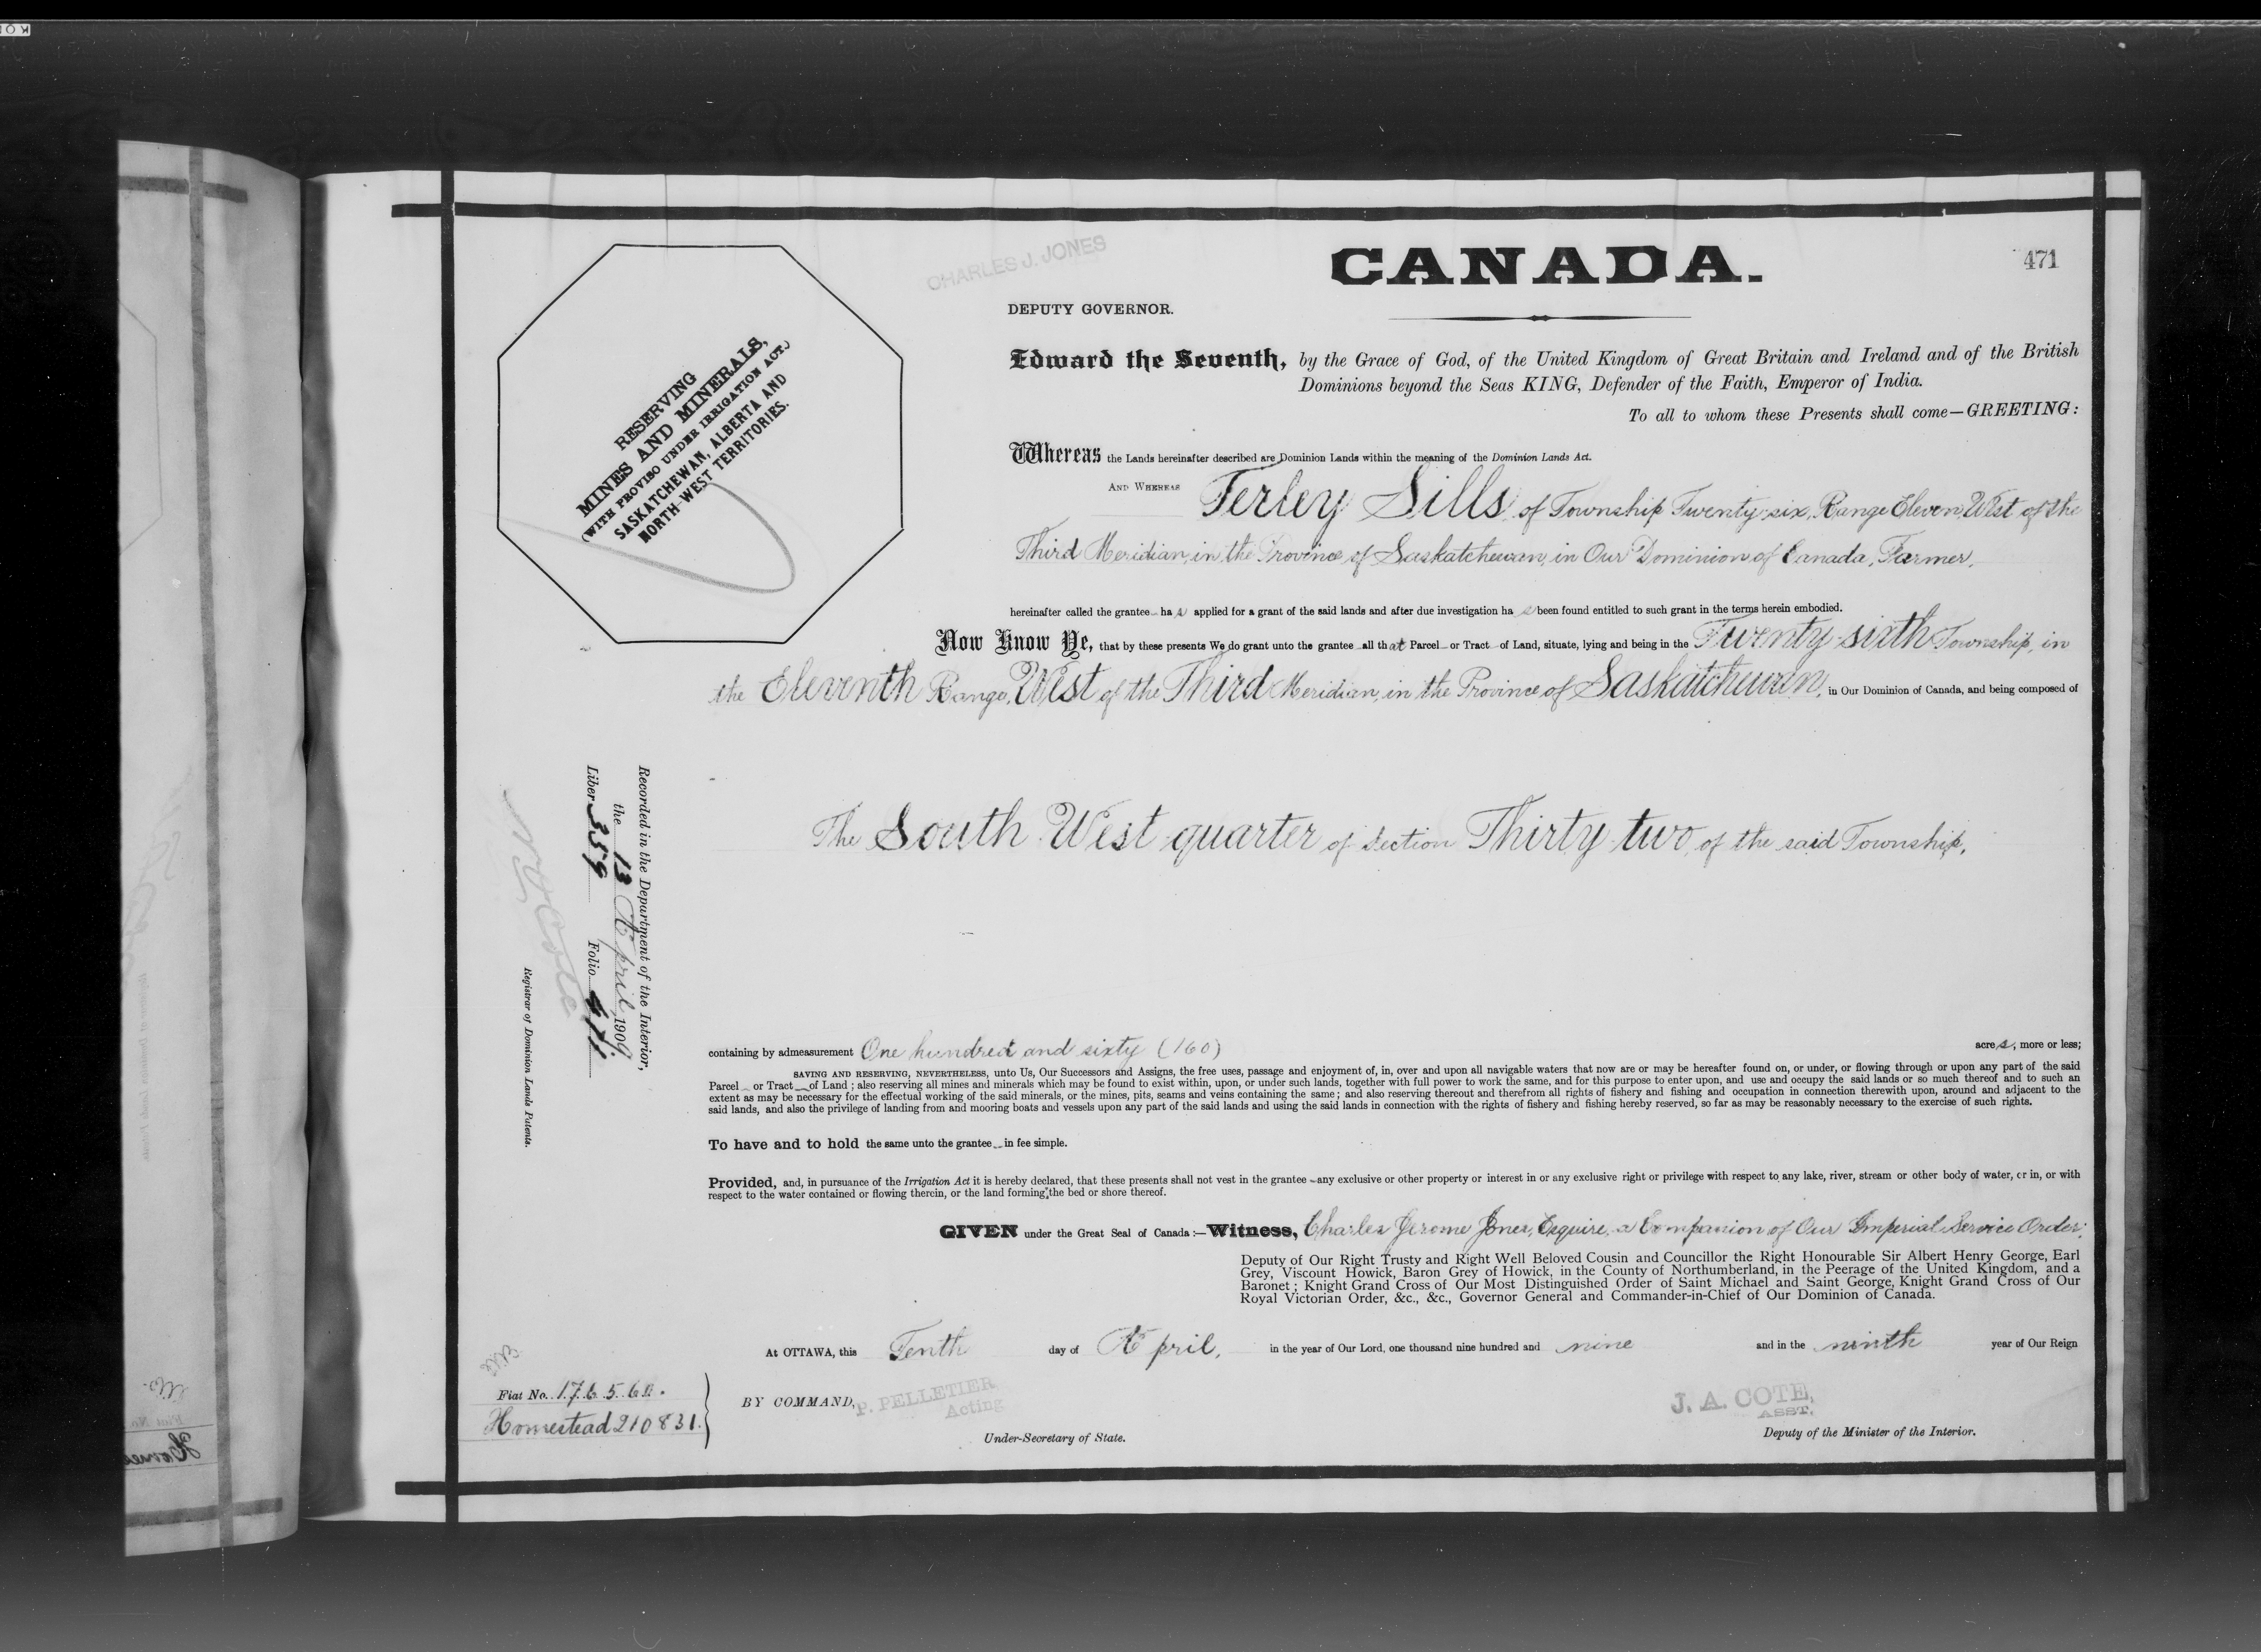 CHARLES J. JONES
CANADA.
471
DEPUTY GOVERNOR.
Edward the Seventh, by the Grace of God, of the United Kingdom of Great Britain and Ireland and of the British
Dominions beyond the Seas KING, Defender of the Faith, Emperor of India.
To all to whom these Presents shall come—GREETING:
RESERVING
MINES AND MINERALS,
(WITH PROVISO UNDER IRRIGATION ACT.)
SASKATCHEWAN, ALBERTA AND
NORTH-WEST TERRITORIES.
Whereas the Lands hereinafter described are Dominion Lands within the meaning of the Dominion Lands Act.
AND WHEREAS Ferley Sills of Township Twenty-six, Range Eleven West of the
Third Meridian, in the Province of Saskatchewan, in Our Dominion of Canada, Farmer,
hereinafter called the grantee has applied for a grant of the said lands and after due investigation has been found entitled to such grant in the terms herein embodied.
Now Know Ye, that by these presents We do grant unto the grantee all that Parcel or Tract of Land, situate, lying and being in the Twenty-sixth Township, in
the Eleventh Range, West of the Third Meridian, in the Province of Saskatchewan, in Our Dominion of Canada, and being composed of
The South West quarter of Section Thirty-two, of the said Township,
Recorded in the Department of the Interior,
the 13 April 1909
Liber 359 Folio 471
Registrar of Dominion Lands Patents.
containing by admeasurement One hundred and sixty (160) acres, more or less;
SAVING AND RESERVING, NEVERTHELESS, unto Us, Our Successors and Assigns, the free uses, passage and enjoyment of, in, over and upon all navigable waters that now are or may be hereafter found on, or under, or flowing through or upon any part of the said
Parcel or Tract of Land; also reserving all mines and minerals which may be found to exist within, upon, or under such lands, together with full power to work the same, and for this purpose to enter upon, and use and occupy the said lands or so much thereof and to such an
extent as may be necessary for the effectual working of the said minerals, or the mines, pits, seams and veins containing the same; and also reserving thereout and therefrom all rights of fishery and fishing and occupation in connection therewith upon, around and adjacent to the
said lands, and also the privilege of landing from and mooring boats and vessels upon any part of the said lands and using the said lands in connection with the rights of fishery and fishing hereby reserved, so far as may be reasonably necessary to the exercise of such rights.
To have and to hold the same unto the grantee in fee simple.
Provided, and, in pursuance of the Irrigation Act it is hereby declared, that these presents shall not vest in the grantee any exclusive or other property or interest in or any exclusive right or privilege with respect to any lake, river, stream or other body of water, or in, or with
respect to the water contained or flowing therein, or the land forming the bed or shore thereof.
GIVEN under the Great Seal of Canada:—Witness, Charles Jerome Jones, Esquire, a Companion of Our Imperial Service Order;
Deputy of Our Right Trusty and Right Well Beloved Cousin and Councillor the Right Honourable Sir Albert Henry George, Earl
Grey, Viscount Howick, Baron Grey of Howick, in the County of Northumberland, in the Peerage of the United Kingdom, and a
Baronet; Knight Grand Cross of Our Most Distinguished Order of Saint Michael and Saint George, Knight Grand Cross of Our
Royal Victorian Order, &c., &c., Governor General and Commander-in-Chief of Our Dominion of Canada.
At OTTAWA, this Tenth day of April, in the year of Our Lord, one thousand nine hundred and nine and in the ninth year of Our Reign
Fiat No. 176560.
Homestead 210831.
BY COMMAND,
P. PELLETIER
Acting
Under-Secretary of State.
J. A. COTE,
ASST.
Deputy of the Minister of the Interior.